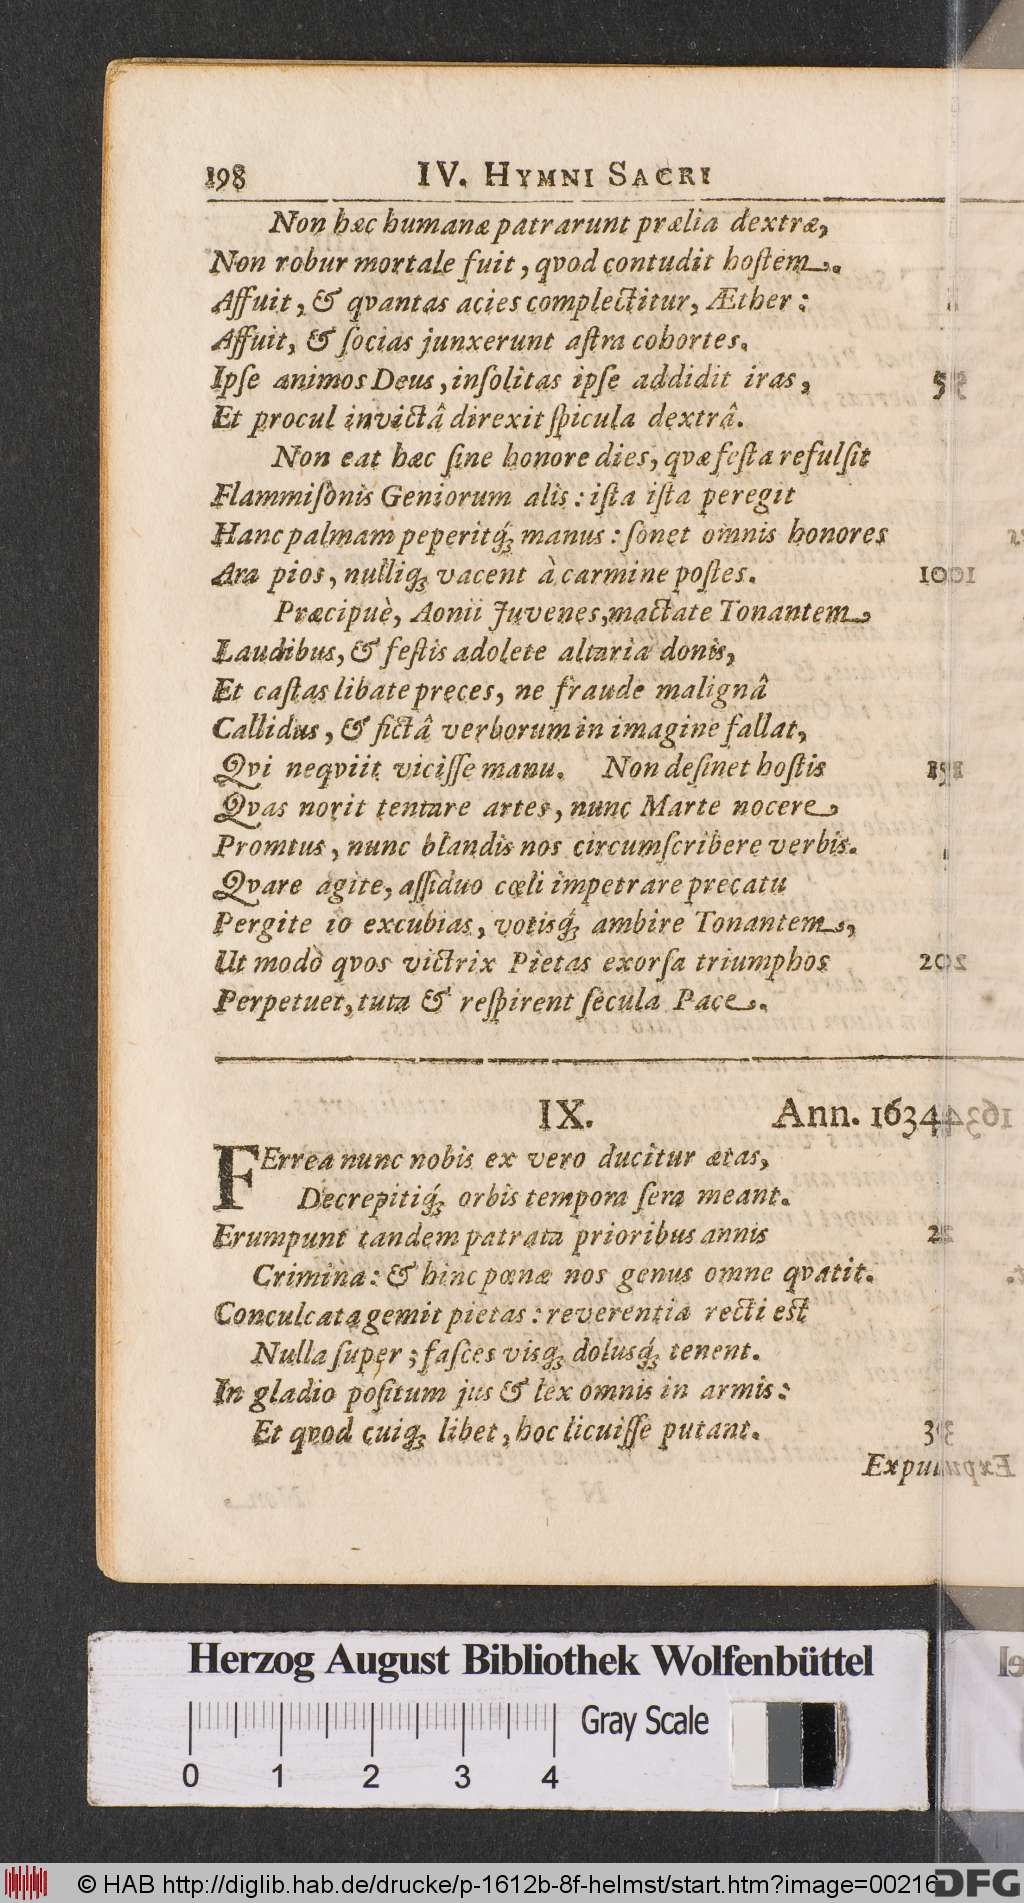 198 IV. HYMNI SACRI
Non hæc humanæ patrarunt prælia dextræ,
Non robur mortale fuit, qvod contudit hoſtem.
Affuit, & qvantas acies complectitur, Æther:
Affuit, & ſocias junxerunt aſtra cohortes.
Ipſe animos Deus, inſolitas ipſe addidit iras,
Et procul invictâ direxit ſpicula dextrâ.
Non eat hæc ſine honore dies, qvæ feſta refulſit
Flammiſonis Geniorum alis: iſta iſta peregit
Hanc palmam peperitq́; manus: ſonet omnis honores
Ara pios, nulliq; vacent à carmine poſtes.
Præcipuè, Aonii Juvenes, mactate Tonantem
Laudibus, & feſtis adolete altaria donis,
Et caſtas libate preces, ne fraude malignâ
Callidus, & fictâ verborum in imagine fallat,
Qvi neqviit viciſſe manu. Non deſinet hoſtis
Qvas norit tentare artes, nunc Marte nocere
Promtus, nunc blandis nos circumſcribere verbis.
Qvare agite, aſſiduo cœli impetrare precatu
Pergite io excubias, votisq́; ambire Tonantem,
Ut modò qvos victrix Pietas exorſa triumphos
Perpetuet, tuta & reſpirent ſecula Pace.
IX. Ann. 1634
FErrea nunc nobis ex vero ducitur ætas,
Decrepitiq́; orbis tempora ſera meant.
Erumpunt tandem patrata prioribus annis
Crimina: & hinc pœnæ nos genus omne qvatit.
Conculcata gemit pietas: reverentia recti eſt
Nulla ſuper; faſces visq; dolusq́; tenent.
In gladio poſitum jus & lex omnis in armis:
Et qvod cuiq; libet, hoc licuiſſe putant.
Herzog August Bibliothek Wolfenbüttel
Gray Scale
0 1 2 3 4
© HAB http://diglib.hab.de/drucke/p-1612b-8f-helmst/start.htm?image=00216
DFG